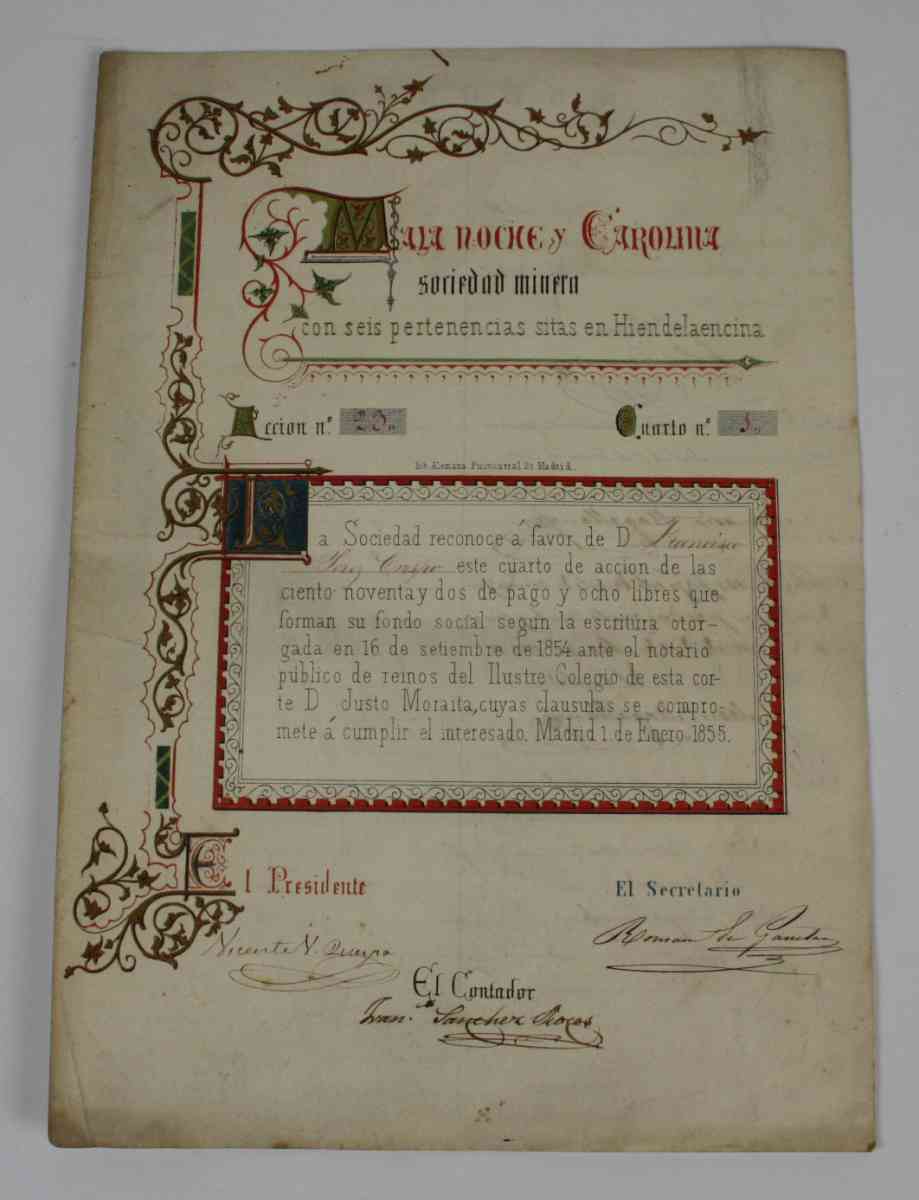 Mala noche y Carolina
sociedad minera
con seis pertenencias sitas en Hiendelaencina
Accion n.º 23,, Cuarto n.º
Lit. Alemana Fuencarral 2. Madrid.
La Sociedad reconoce á favor de D Francisco
este cuarto de accion de las
ciento noventa y dos de pago y ocho libres que
forman su fondo social segun la escritura otor-
gada en 16 de setiembre de 1854 ante el notario
público de reinos del Ilustre Colegio de esta cor-
te D Justo Moraita, cuyas clausulas se compro-
mete á cumplir el interesado. Madrid 1. de Enero 1855.
El Presidente El Secretario
Vicente V. Queypo Roman de
El Contador
Fran.co Sanchez Roces